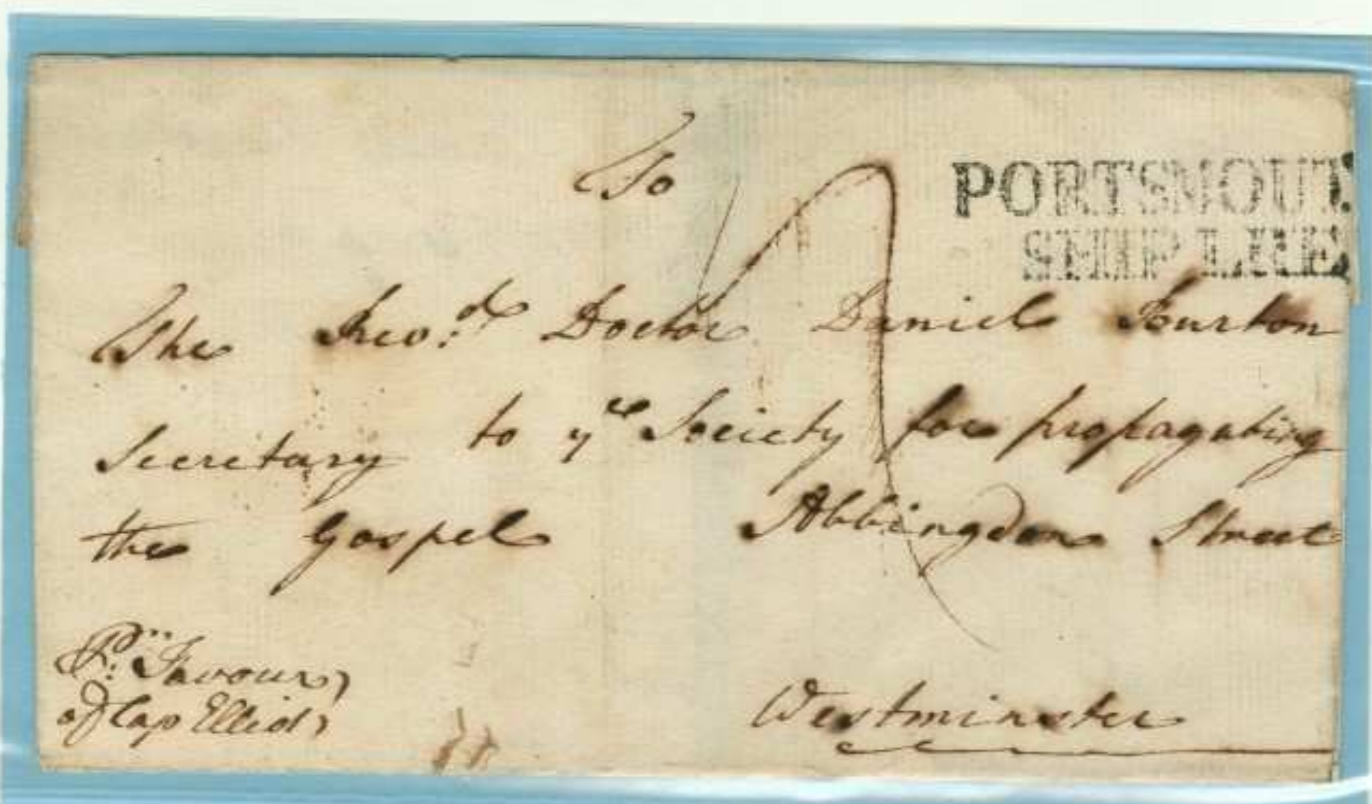 PORTSMOUT
SHIP LRE
To
The Revd. Doctor Daniel Burton
Secretary to ye Society for propagating
the Gospel Abbingdon Street
Westminster
Pr. Favour,
of Cap Elliot,